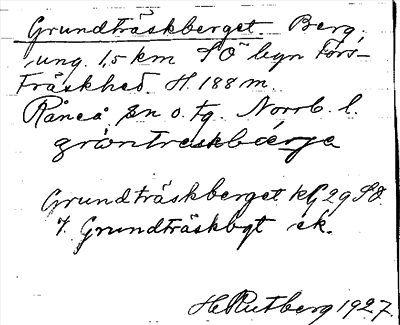 Grundträskberget. Berg,
ung. 1,5 km SÖ byn Fors-
träskhed. H. 188 m.
Råneå sn o. tg. Norrb. l.
gröntreskbärje
Grundträskberget kG 29 SO.
Grundträskbgt ek.
H Rutberg 1927.